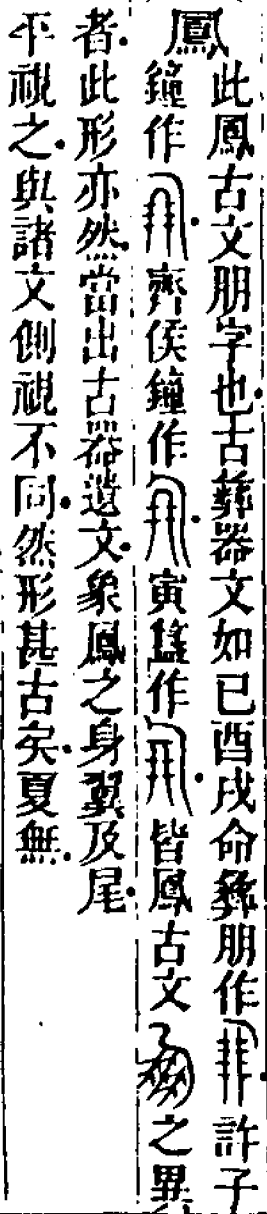 鳳
此鳳古文朋字也古彝器文如已酉戌命彝朋作許子
鐘作齊侯鐘作寅簋作皆鳳古文之異
者此形亦然當出古器遺文象鳳之身翼及尾
平視之與諸文側視不同然形甚古矣夏無